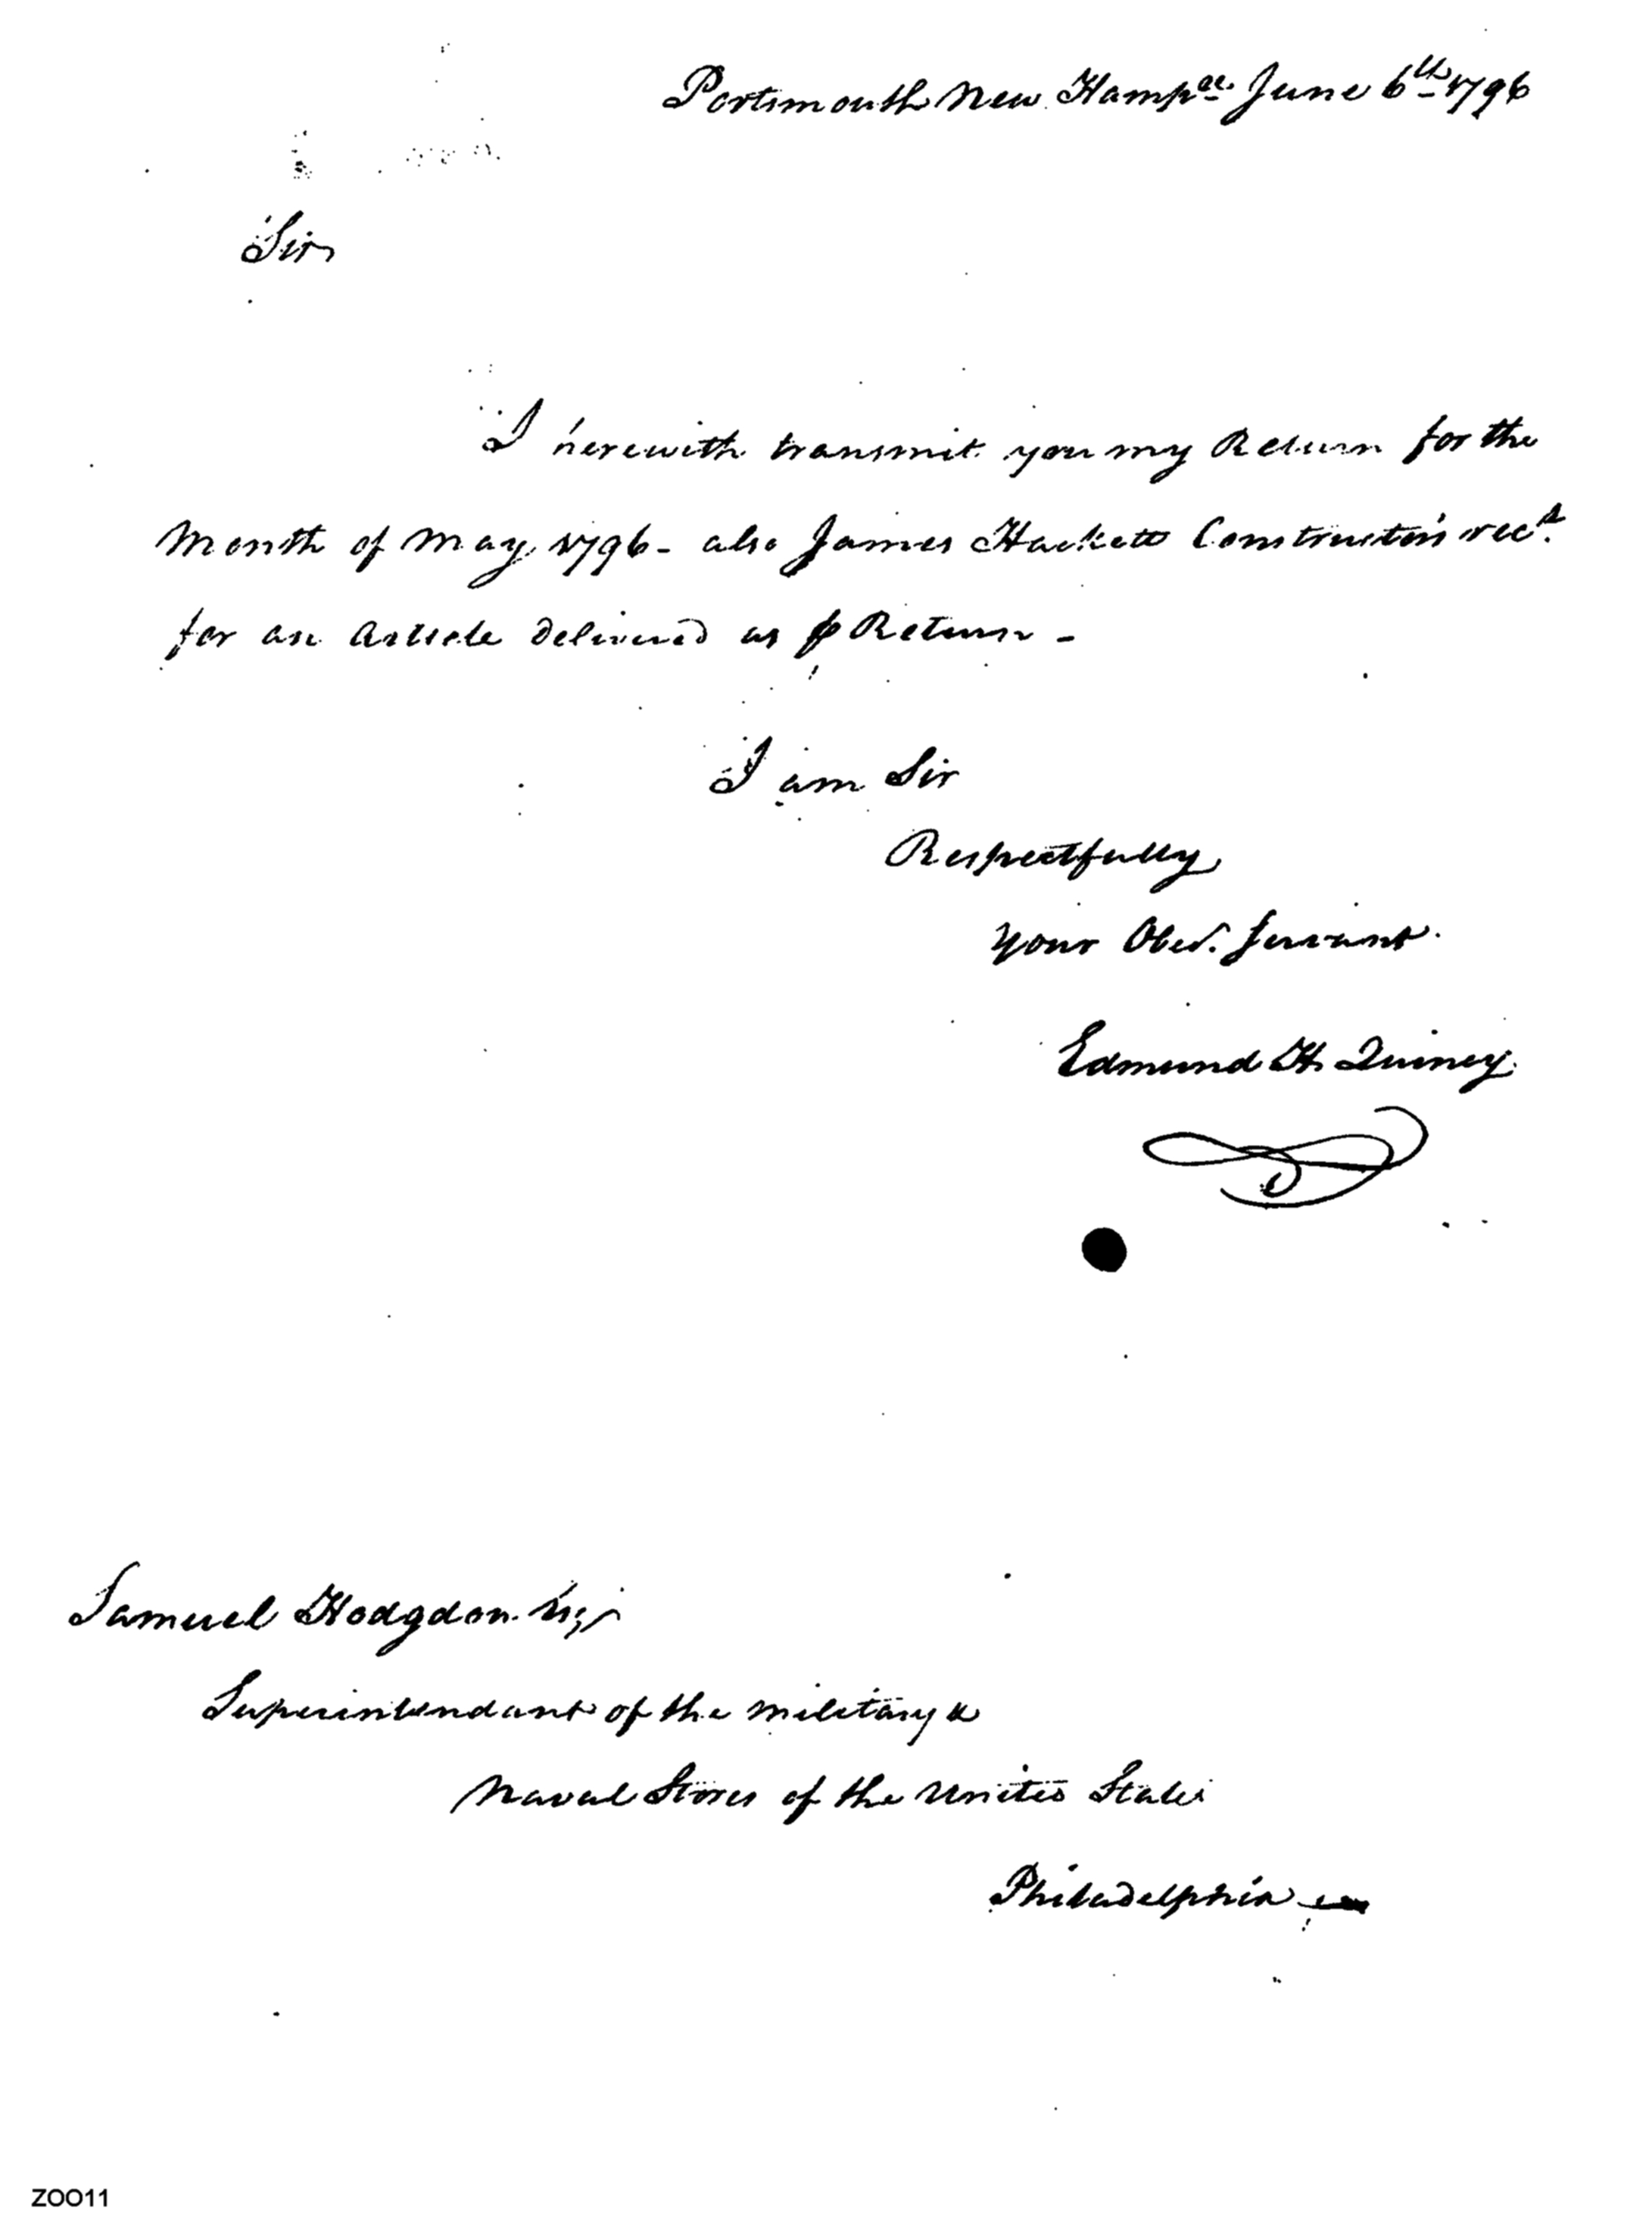 Portsmouth New Hampre. June 6th 1796
Sir
I herewith transmit you my Return for the
Month of May 1796 - also James Hackett Constructor's rect.
for an Article delivered as ⅌ Return -
I am Sir
Respectfully
your Obed. Servant.
Edmund H. Quincy.
Samuel Hodgdon Esqr
Superintendant of the military &
Naval Stores of the United States
Philadelphia
ZOO11